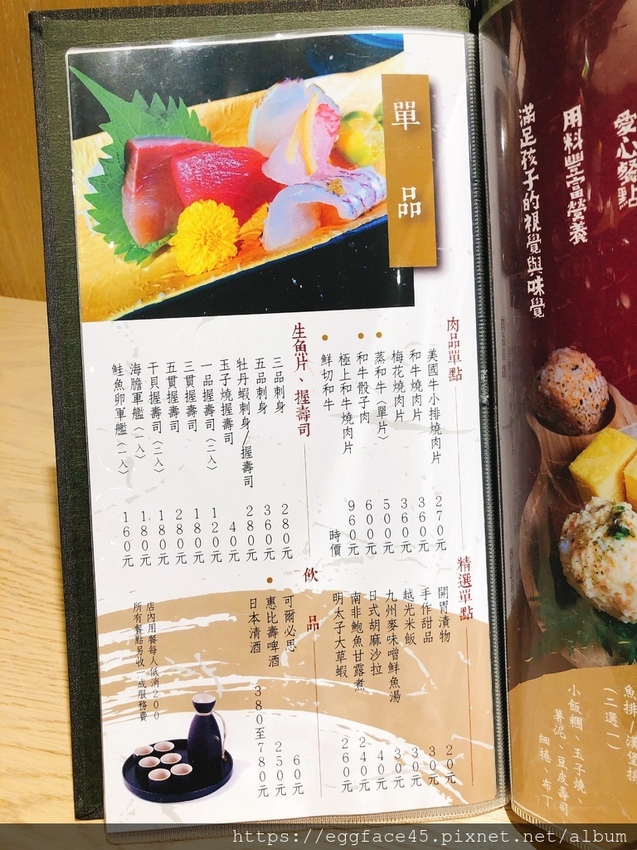 單品
肉品單點
美國牛小排燒肉片 270元
和牛燒肉片 360元
梅花燒肉片 360元
蒸和牛（單片） 500元
和牛骰子肉 600元
極上和牛燒肉片 960元
鮮切和牛 時價
生魚片、握壽司
三品刺身 280元
五品刺身 360元
牡丹蝦刺身/握壽司 280元
玉子燒握壽司 40元
一品握壽司（二入） 120元
三貫握壽司 180元
五貫握壽司 280元
干貝握壽司（二入） 180元
海膽軍艦（一入） 180元
鮭魚卵軍艦（一入） 160元
精選單點
開胃漬物 20元
手作甜品 30元
越光米飯 30元
九州麥味噌鮮魚湯 30元
日式胡麻沙拉 40元
南非鮑魚甘露煮 240元
明太子大草蝦 260元
飲品
可爾必思 60元
惠比壽啤酒 250元
日本清酒 380至780元
店內用餐每人低消200
所有餐點另收一成服務費
愛心餐點
用料豐富營養
滿足孩子的視覺與味覺
魚排/漢堡排
（二選一）
小飯糰、玉子燒、
薯泥、豆皮壽司
細捲、布丁
https://eggface45.pixnet.net/album